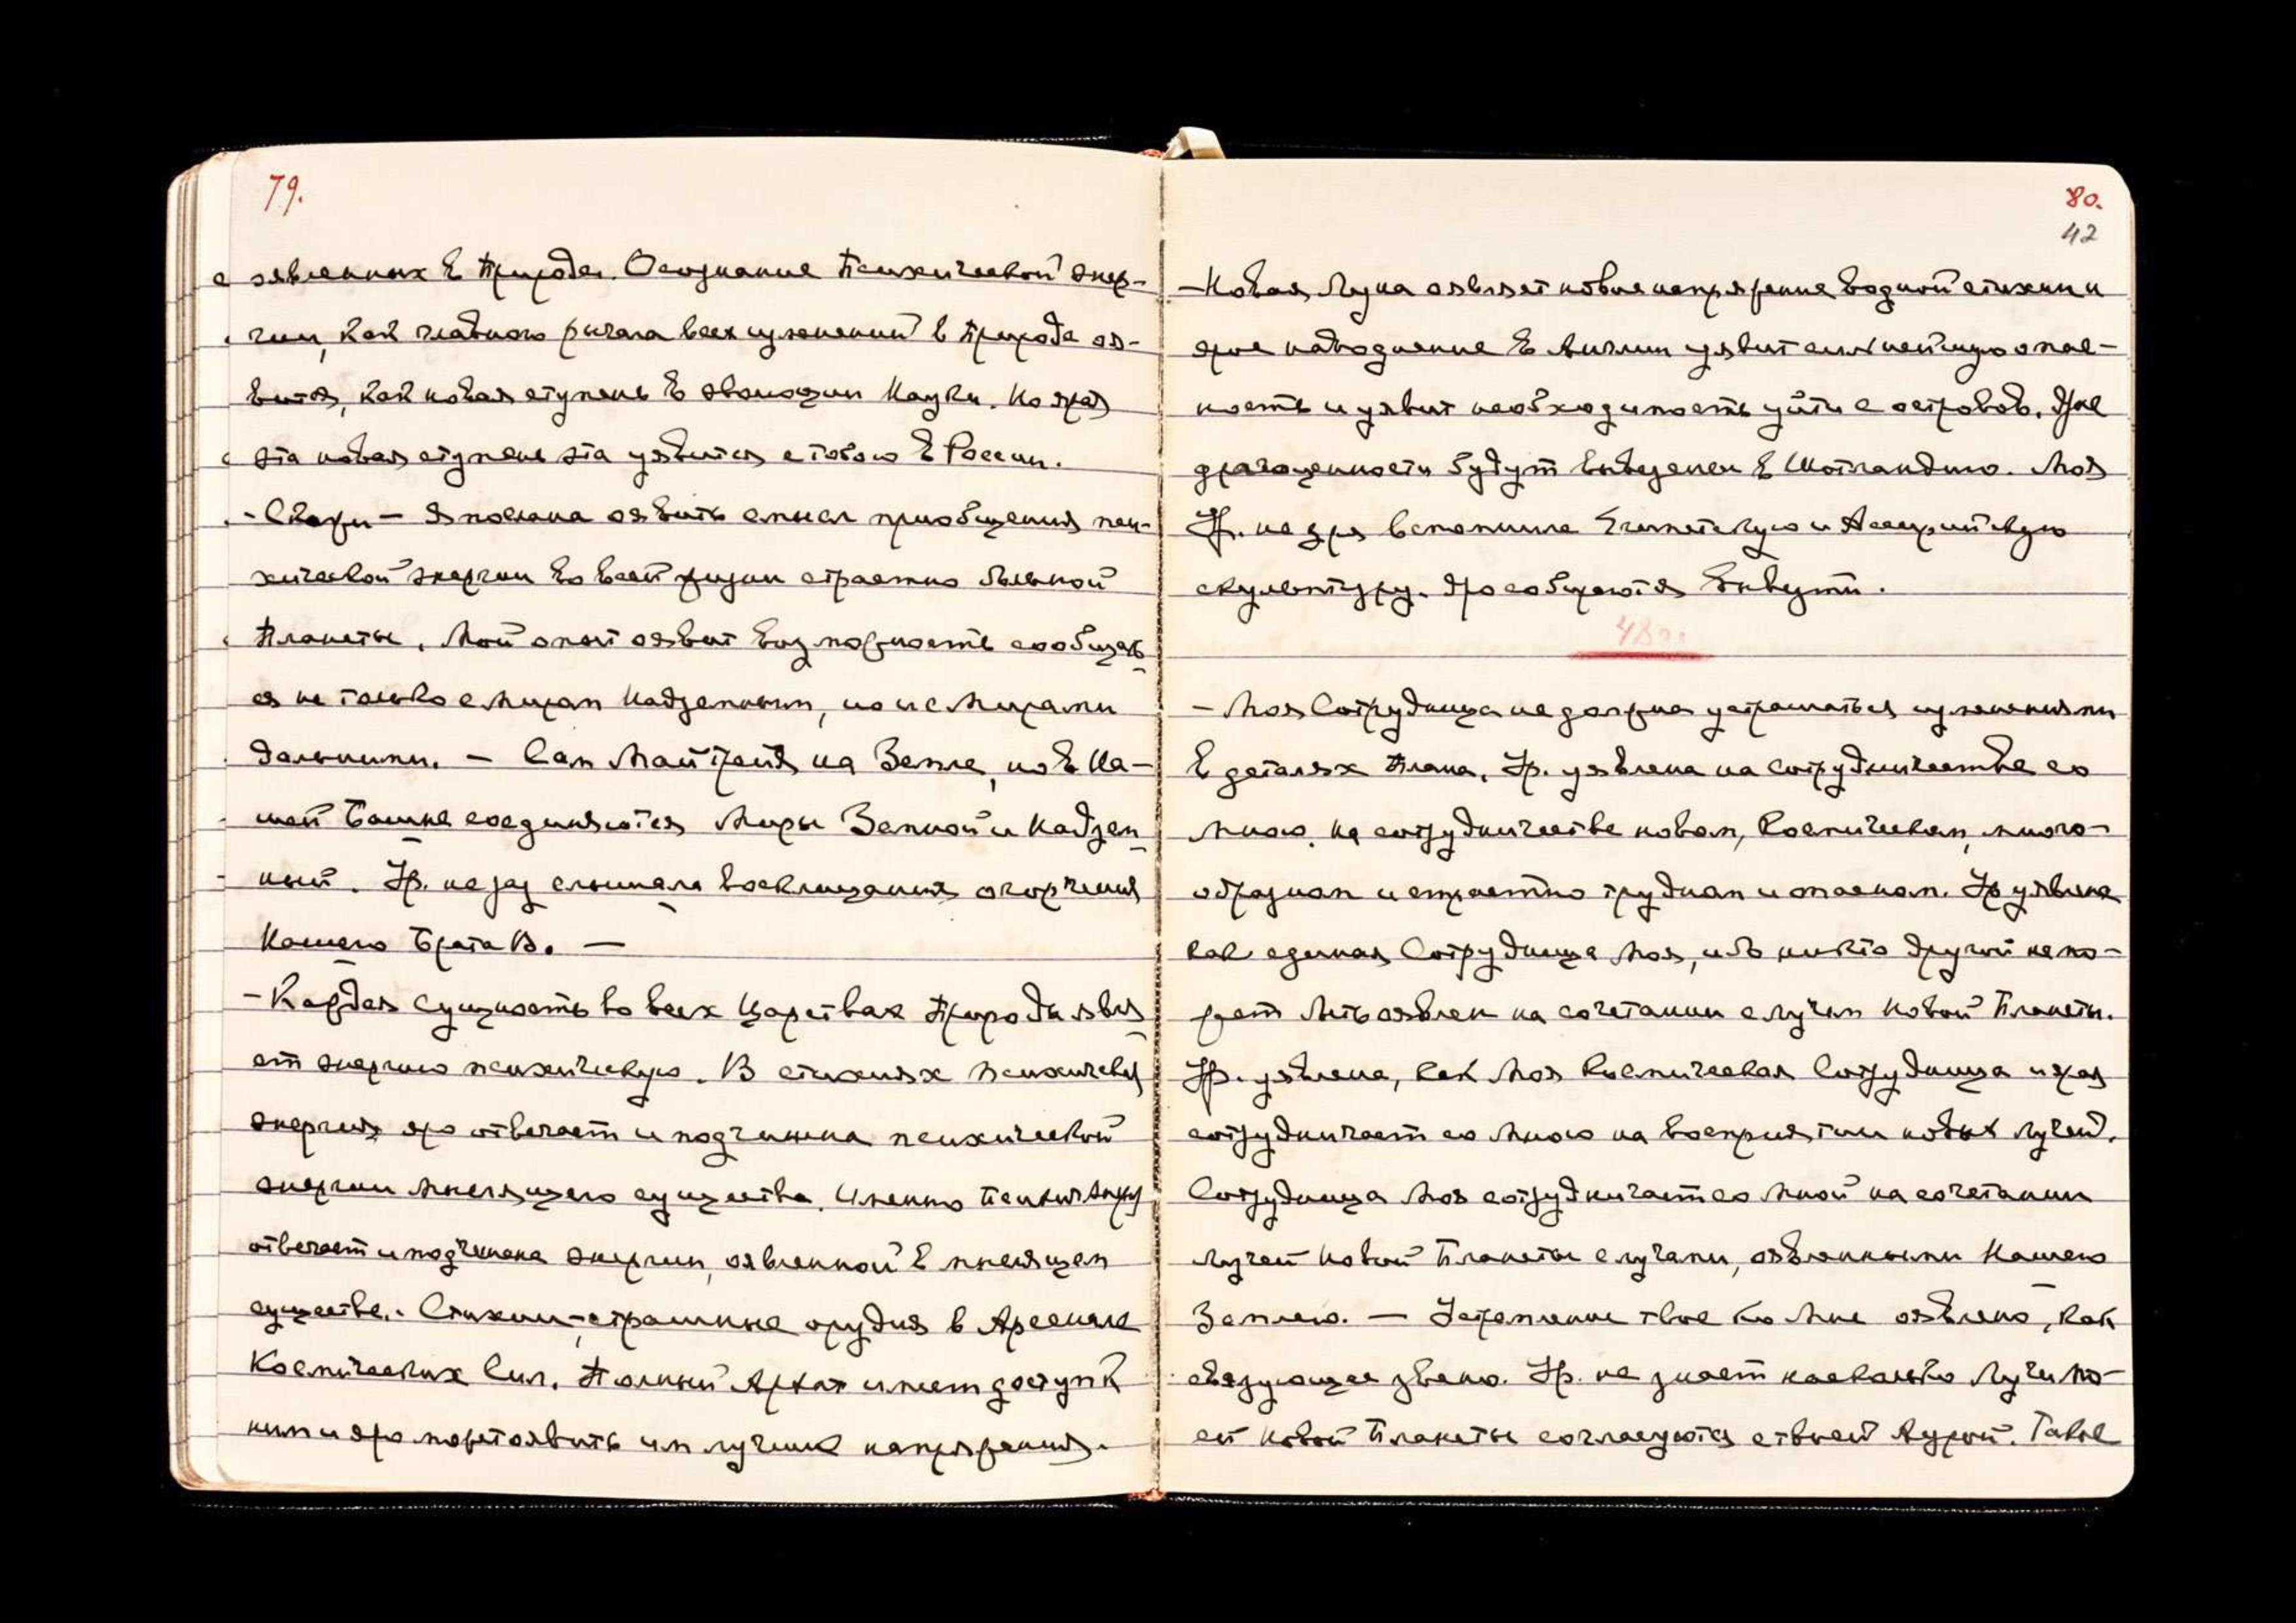 79.
с оявленных в Природе. Осознание Психической энер-
гии, как главного рычага всех изменений в Природе оя-
вится, как новая ступень в эволюции Науки. Но ярая
эта новая ступень эта уявится с тобою в России.
- Скажи - Я послана оявить смысл приобщения пси-
хической энергии во всей жизни страстно больной
Планеты. Мой опыт оявит возможность сообщать-
ся не только с Миром Надземным, но и с Мирами
дальними. — Сам Майтрейя на Земле, но в На-
шей Башне соединяются Миры Земной и Надзем-
ный. Ур. не раз слышала восклицания огорчения
Нашего Брата В. —
- Каждая сущность во всех Царствах Природы явля-
ет энергию психическую. В стихиях психическая
энергия яро отвечает и подчинена психической
энергии мыслящего существа. Именно Психич. энергия
отвечает и подчинена энергии, оявленной в мыслящем
существе. - Стихии - страшные орудия в Арсенале
Космических Сил. Полный Архат имеет доступ к
ним и яро может оявить им лучшие напряжения.
80.
42
- Новая Луна оявляет новое напряжение водной стихии и
ярое наводнение в Англии уявит сильнейшую опас-
ность и уявит необходимость уйти с островов. Уже
драгоценности будут вывезены в Шотландию. Моя
Ур. не зря вспомнила Египетскую и Ассирийскую
скульптуру. Яро собираются вывезти.
- Моя Сотрудница не должна устрашаться изменениями
в деталях Плана. Ур. уявлена на сотрудничестве со
Мною, на сотрудничестве новом, Космическом, много-
образном и страстно трудном и опасном. Ур. уявлена
как единая Сотрудница Моя, ибо никто другой не мо-
жет быть оявлен на сочетании с лучом Новой Планеты.
Ур. уявлена, как Моя Космическая Сотрудница и ярая
сотрудничает со Мною на восприятии новых лучей.
Сотрудница Моя сотрудничает со Мной на сочетании
лучей Новой Планеты с лучами, оявленными Нашею
Землею. — Устремление твое ко Мне оявлено, как
связующее звено. Ур. не знает насколько Лучи Мо-
ей Новой Планеты согласуются с твоей Аурой. Такое